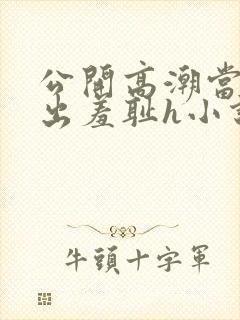 公開高潮當
出羞耻h小
牛頭十字軍